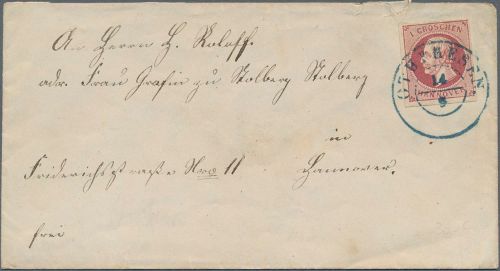 An Herrn H. Roloff.
adr. Frau Gräfin zu Stolberg Stolberg
in
Friderichsstraße Nro 11 Hannover.
frei
1 GROSCHEN
HANNOVER
OTTERNESEN
14
8